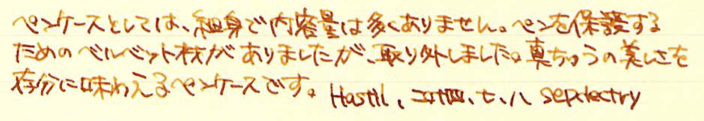 ペンケースとしては、細身で内容量は多くありません。ペンを保護する
ためのベルベット材がありましたが、取り外しました。真ちゅうの美しさを
存分に味わえるペンケースです。Hastil,